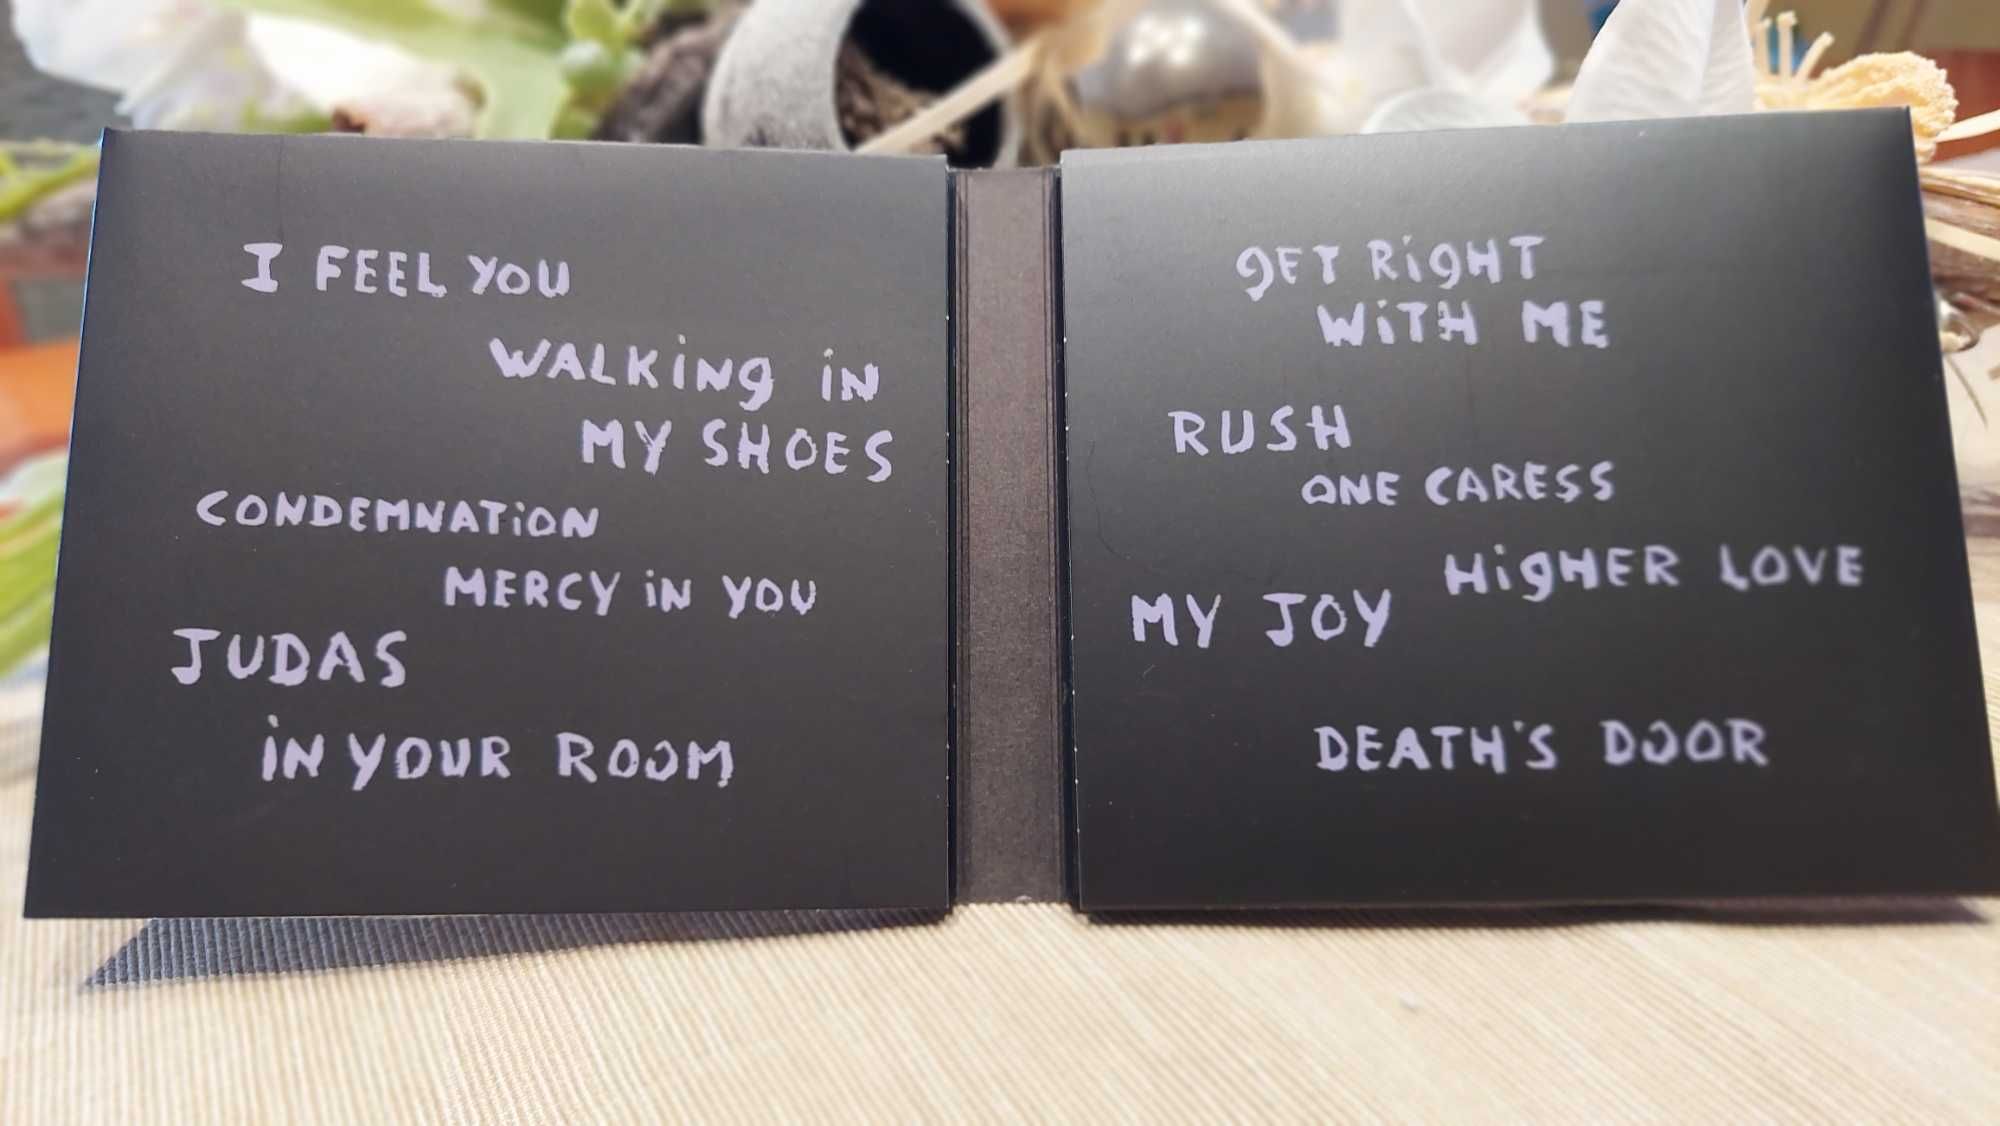 I FEEL YOU
WALKiNg iN
MY SHOES
CONDEMNATiON
MERCY iN YOU
JUDAS
iN YOUR ROOM
gET RigHT
WiTH ME
RUSH
ONE CARESS
HigHER LOVE
MY JOY
DEATH'S DOOR